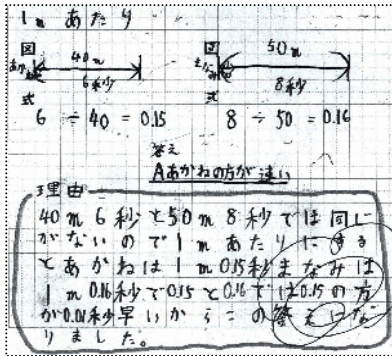 1m あたり
図
図
あかね 40m
まなみ 50m
6秒
8秒
式
式
6 ÷ 40 = 0.15
8 ÷ 50 = 0.16
答え
A あかねの方が速い
理由
40m 6秒と50m 8秒では同じ
がないので1mあたりにする
とあかねは1m0.15秒まなみは
1m0.16秒で0.15と0.16では0.15の方
が0.01秒早いからこの答えにな
りました。